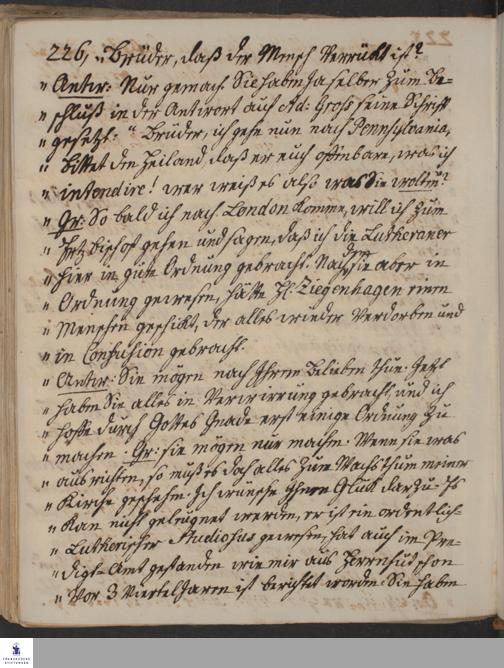 226, „Brüder, daß der Mensch verrückt ist?
„ Antw: Nur gemach. Sie haben ja selber zum Be-
„ schluß in der Antwort auf Ad: Groß seine Schrift
„ gesetzt: „ Brüder, ich gehe nun nach Pennsylvania,
„ bittet den Heiland, daß er euch offenbare, was ich
„ intendire! wer weiß es also was Sie wolten?
„ Gr: So bald ich nach London komme, will ich zum
„ Bischof gehen und sagen, daß ich die Lutheraner
„ hier in gute Ordnung gebracht. Nach dem sie aber in
„ Ordnung gewesen, hätte H. Ziegenhagen einen
„ Menschen geschickt, der alles wieder verdorben und
„ in Confusion gebracht.
„ Antw: Sie mögen nach Ihrem Belieben thun. Jetzt
„ haben Sie alles in Verwirrung gebracht, und ich
„ hoffe durch Gottes Gnade erst einige Ordnung zu
„ machen. Gr: sie mögen nur machen. Wenn sie was
„ ausrichten, so muß es doch alles zum Wachsthum meiner
„ Kirche geschehen. Ich wünsche ihnen Glück darzu. Es
„ kan nicht geleugnet werden, er ist ein ordentlich-
„ Lutherischer Studiosus gewesen, hat auch im Pre-
„ digt-Amt gestanden wie mir aus Herrnhut schon
„ vor 3 Viertel Jaren ist berichtet worden. Sie haben
FRANCKESCHE STIFTUNGEN